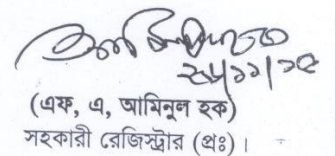 ২৫/১১/১৫
(এফ, এ, আমিনুল হক)
সহকারী রেজিস্ট্রার (প্রঃ)।